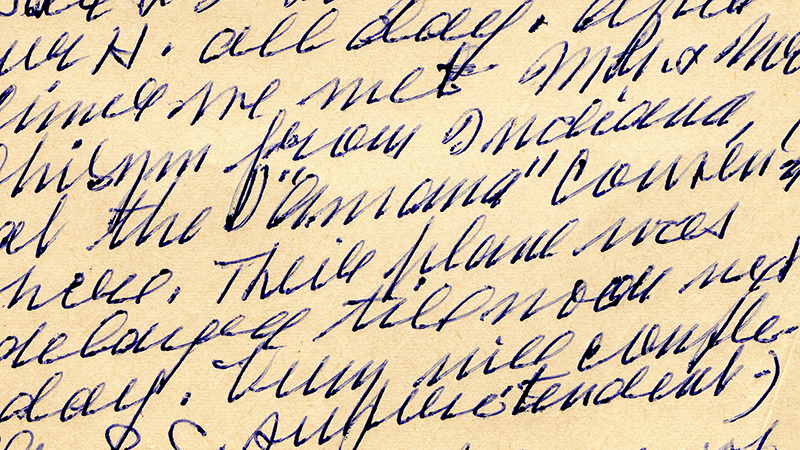 H. all day.
since we met Mr. &
from Indiana,
at the "Amana" Conven-
here. Their plane was
delayed till noon next
day. Very nice couple.
Superintendent)